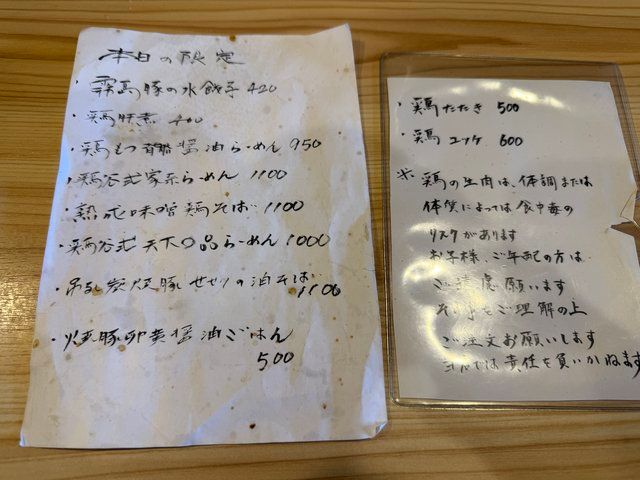 本日の限定
・霧島豚の水餃子 420
・鶏肝煮 400
・鶏もつ 醤油らーめん 950
・鶏谷式家系らーめん 1100
・熟成味噌鶏そば 1100
・鶏谷式 天下〇品らーめん 1000
・吊るし炭焼豚せせりの油そば 1100
・焼豚卵黄醤油ごはん
500
・鶏たたき 500
・鶏ユッケ 600
※ 鶏の生肉は、体調または
体質によっては食中毒の
リスクがあります
お子様、ご年配の方は
ご遠慮願います
ご理解の上
ご注文お願いします
当店では責任を負いかねます